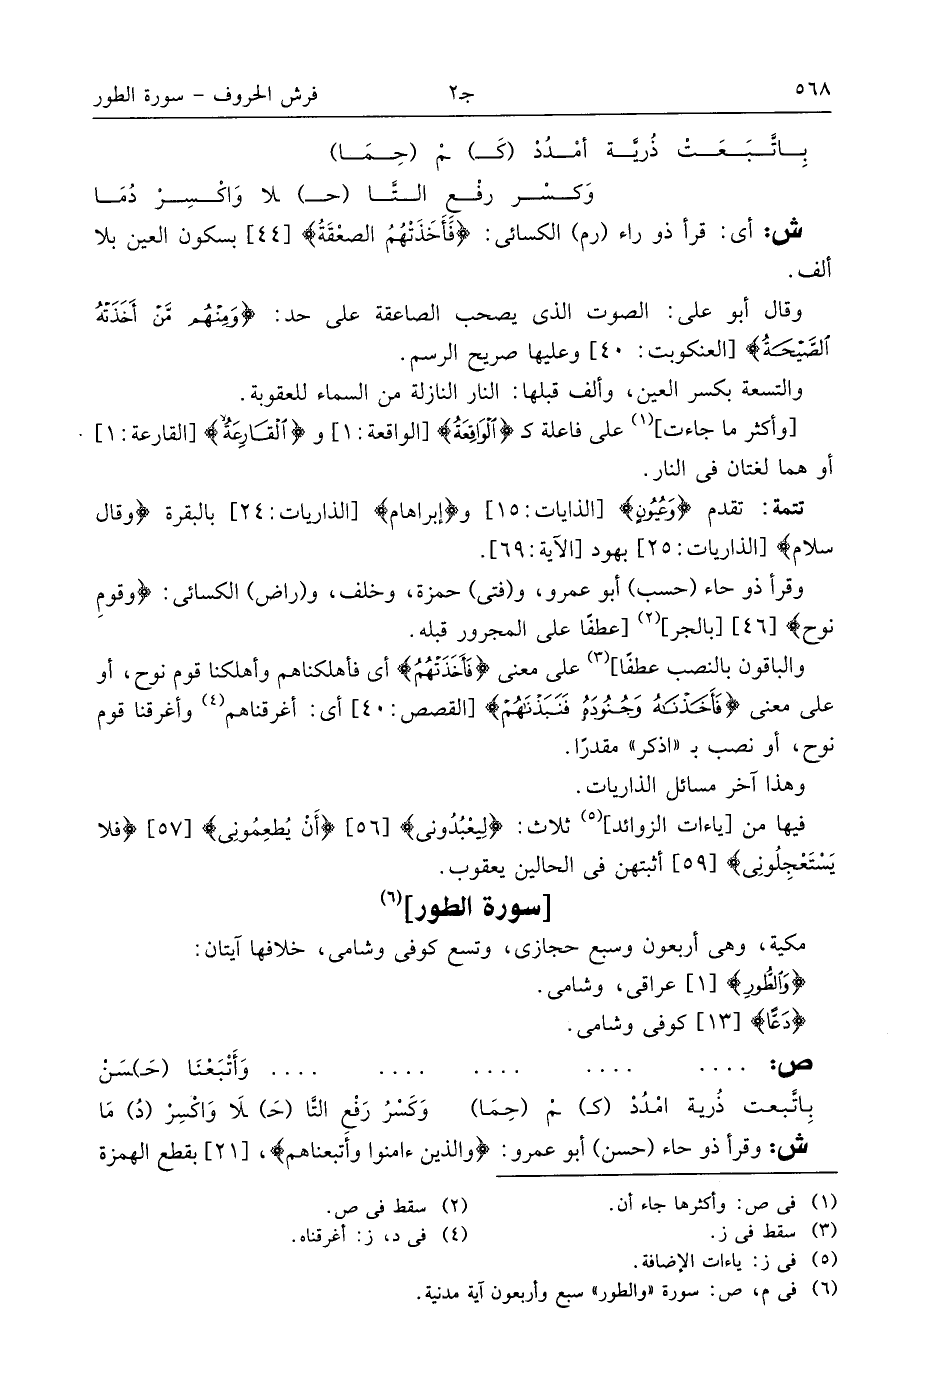 ٥٦٨ جـ٢ فرش الحروف – سورة الطور
بِـاتَّـبَـعَـتْ ذُريَّـة أمْـدُدْ (كَـ) ـمْ (حِـمَـا)
وَكَـسْـر رفْـع الـتَّـا (حـ) ـلا وَاكْـسِـرْ دُمَـا
ش: أى: قرأ ذو راء (رم) الكسائى: ﴿فَأَخَذَتْهُمُ الصعْقَةُ﴾ [٤٤] بسكون العين بلا
ألف.
وقال أبو على: الصوت الذى يصحب الصاعقة على حد: ﴿وَمِنْهُم مَّنْ أَخَذَتْهُ
ٱلصَّيْحَةُ﴾ [العنكوبت: ٤٠] وعليها صريح الرسم.
والتسعة بكسر العين، وألف قبلها: النار النازلة من السماء للعقوبة.
[وأكثر ما جاءت](١) على فاعلة كـ ﴿ٱلْوَاقِعَةُ﴾ [الواقعة: ١] و ﴿ٱلْقَارِعَةُ﴾ [القارعة: ١]
أو هما لغتان فى النار.
تتمة: تقدم ﴿وَعُيُونٍ﴾ [الذايات: ١٥] و﴿إبراهام﴾ [الذاريات: ٢٤] بالبقرة ﴿وقال
سلام﴾ [الذاريات: ٢٥] بهود [الآية: ٦٩].
وقرأ ذو حاء (حسب) أبو عمرو، و(فتى) حمزة، وخلف، و(راض) الكسائى: ﴿وقومِ
نوح﴾ [٤٦] [بالجر](٢) [عطفًا على المجرور قبله.
والباقون بالنصب عطفًا](٣) على معنى ﴿فَأَخَذَتْهُمُ﴾ أى فأهلكناهم وأهلكنا قوم نوح، أو
على معنى ﴿فَأَخَذْنَٰهُ وَجُنُودَهُۥ فَنَبَذْنَٰهُمْ﴾ [القصص: ٤٠] أى: أغرقناهم(٤) وأغرقنا قوم
نوح، أو نصب بـ «اذكر» مقدرًا.
وهذا آخر مسائل الذاريات.
فيها من [ياءات الزوائد](٥) ثلاث: ﴿لِيَعْبُدُونى﴾ [٥٦] ﴿أَنْ يُطعِمُونِى﴾ [٥٧] ﴿فلا
يَسْتَعْجِلُونِى﴾ [٥٩] أثبتهن فى الحالين يعقوب.
[سورة الطور](٦)
مكية، وهى أربعون وسبع حجازى، وتسع كوفى وشامى، خلافها آيتان:
﴿وَٱلطُّورِ﴾ [١] عراقى، وشامى.
﴿دَعًّا﴾ [١٣] كوفى وشامى.
ص: .... .... .... .... .... وَأَتْبَعْنَا (حَـ)سَنْ
بِاتَّبعت ذُرية امْدُدْ (كـ) ـمْ (حِمَا) وَكَسْرُ رَفْعِ التَّا (حَـ) ـلَا وَاكْسِرْ (دُ) مَا
ش: وقرأ ذو حاء (حسن) أبو عمرو: ﴿والذين ءامنوا وأَتبعناهم﴾، [٢١] بقطع الهمزة
(١) فى ص: وأكثرها جاء أن. (٢) سقط فى ص.
(٣) سقط فى ز. (٤) فى د، ز: أغرقناه.
(٥) فى ز: ياءات الإضافة.
(٦) فى م، ص: سورة «والطور» سبع وأربعون آية مدنية.